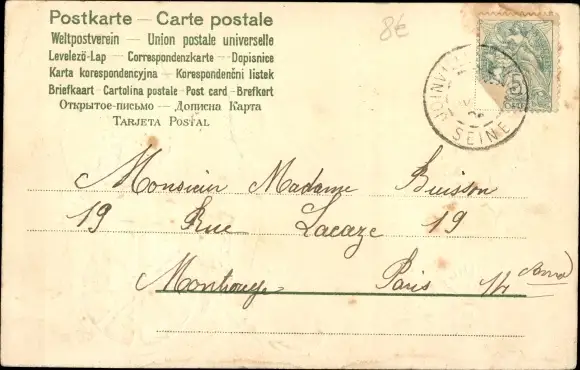 Postkarte — Carte postale
Weltpostverein — Union postale universelle
Levelező-Lap — Correspondenzkarte — Dopisnice
Karta korespondencyjna — Korespondenčni listek
Briefkaart — Cartolina postale — Post card — Brefkort
Открытое-письмо — Дописна Карта
TARJETA POSTAL
8€
5
JOINVILLE
SEINE
Monsieur Madame Buisson
19 Rue Lacaze 19
Montrouge Paris 14